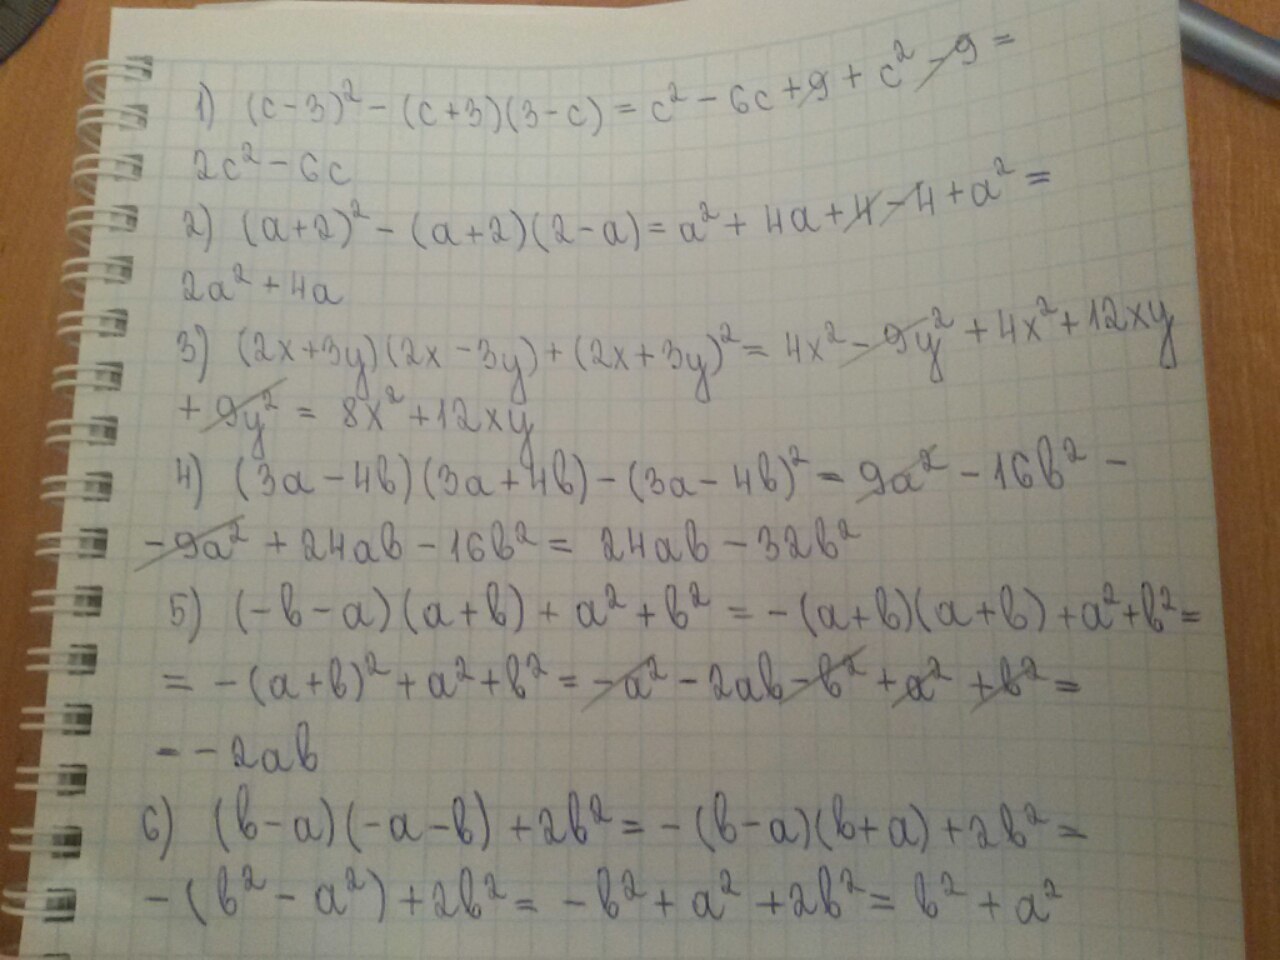 1) (c-3)² - (c+3)(3-c) = c² - 6c + 9 + c² - 9 =
2c² - 6c
2) (a+2)² - (a+2)(2-a) = a² + 4a + 4 - 4 + a² =
2a² + 4a
3) (2x+3y)(2x-3y) + (2x+3y)² = 4x² - 9y² + 4x² + 12xy
+ 9y² = 8x² + 12xy
4) (3a-4b)(3a+4b) - (3a-4b)² = 9a² - 16b² -
- 9a² + 24ab - 16b² = 24ab - 32b²
5) (-b-a)(a+b) + a² + b² = -(a+b)(a+b) + a² + b² =
= -(a+b)² + a² + b² = -a² - 2ab - b² + a² + b² =
= -2ab
6) (b-a)(-a-b) + 2b² = -(b-a)(b+a) + 2b² =
-(b² - a²) + 2b² = -b² + a² + 2b² = b² + a²